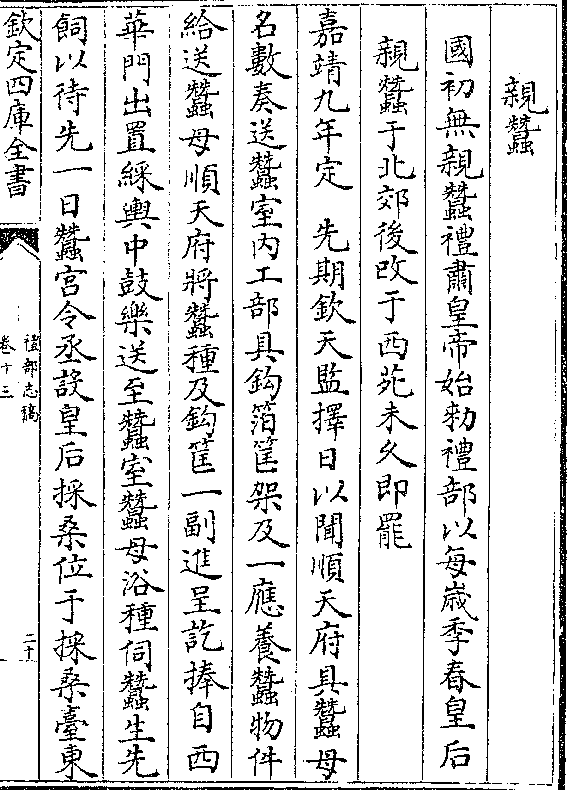 親蠶
國初無親蠶禮肅皇帝始勑禮部以每歳季春皇后
親蠶于北郊後改于西苑未久即罷
嘉靖九年定　先期欽天監擇日以聞順天府具蠶母
名數奏送蠶室内工部具鈎箔筐架及一應養蠶物件
給送蠶母順天府將蠶種及鈎筐一副進呈訖捧自西
華門出置綵輿中鼓樂送至蠶室蠶母浴種伺蠶生先
飼以待先一日蠶宫令丞設皇后採桑位于採桑臺東
欽定四庫全書
禮部志稿
卷十三
二十